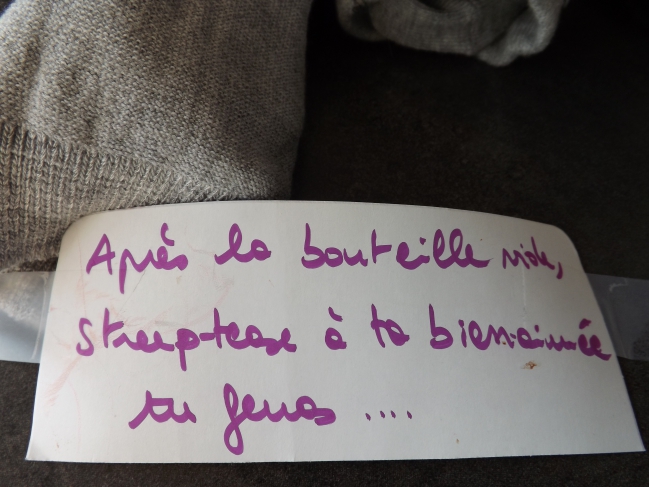 Après la bouteille vide,
streep-tease à ta bien-aimée
tu feras ....